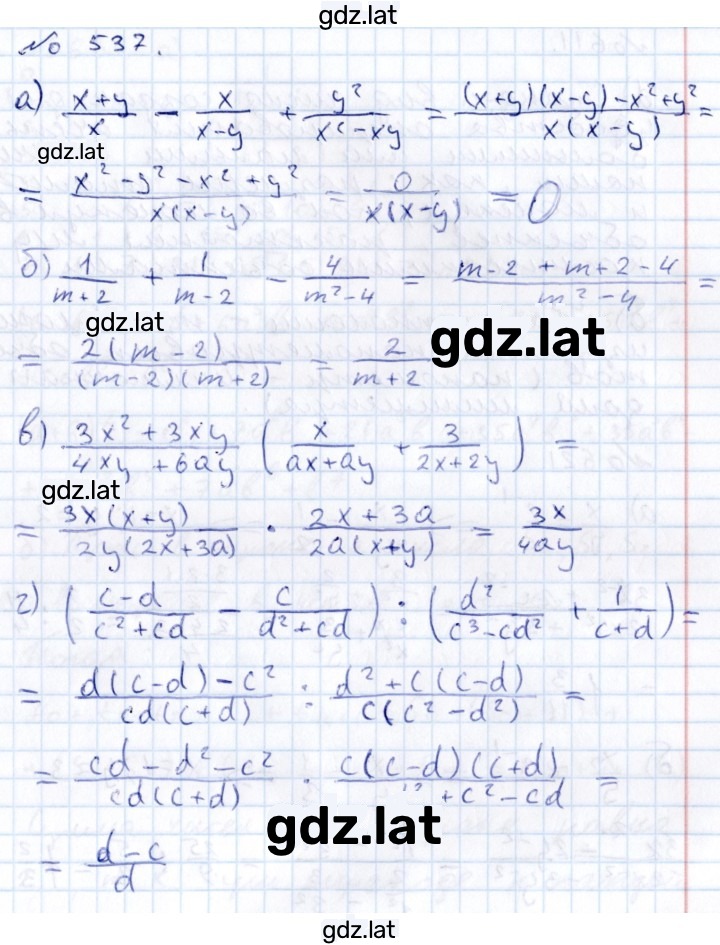 gdz.lat
№ 537.
а) (x+y)/x − x/(x−y) + y²/(x²−xy) = ((x+y)(x−y)−x²+y²)/(x(x−y)) =
gdz.lat
= (x²−y²−x²+y²)/(x(x−y)) = 0/(x(x−y)) = 0
б) 1/(m+2) + 1/(m−2) − 4/(m²−4) = (m−2+m+2−4)/(m²−4) =
gdz.lat
gdz.lat
= 2(m−2)/((m−2)(m+2)) = 2/(m+2)
в) (3x²+3xy)/(4xy+6ay) (x/(ax+ay) + 3/(2x+2y)) =
gdz.lat
= 3x(x+y)/(2y(2x+3a)) · (2x+3a)/(2a(x+y)) = 3x/(4ay)
г) ((c−d)/(c²+cd) − c/(d²+cd)) : (d²/(c³−cd²) + 1/(c+d)) =
= (d(c−d)−c²)/(cd(c+d)) : (d²+c(c−d))/(c(c²−d²)) =
= (cd−d²−c²)/(cd(c+d)) · c(c−d)(c+d)/( +c²−cd) =
gdz.lat
= (d−c)/d
gdz.lat